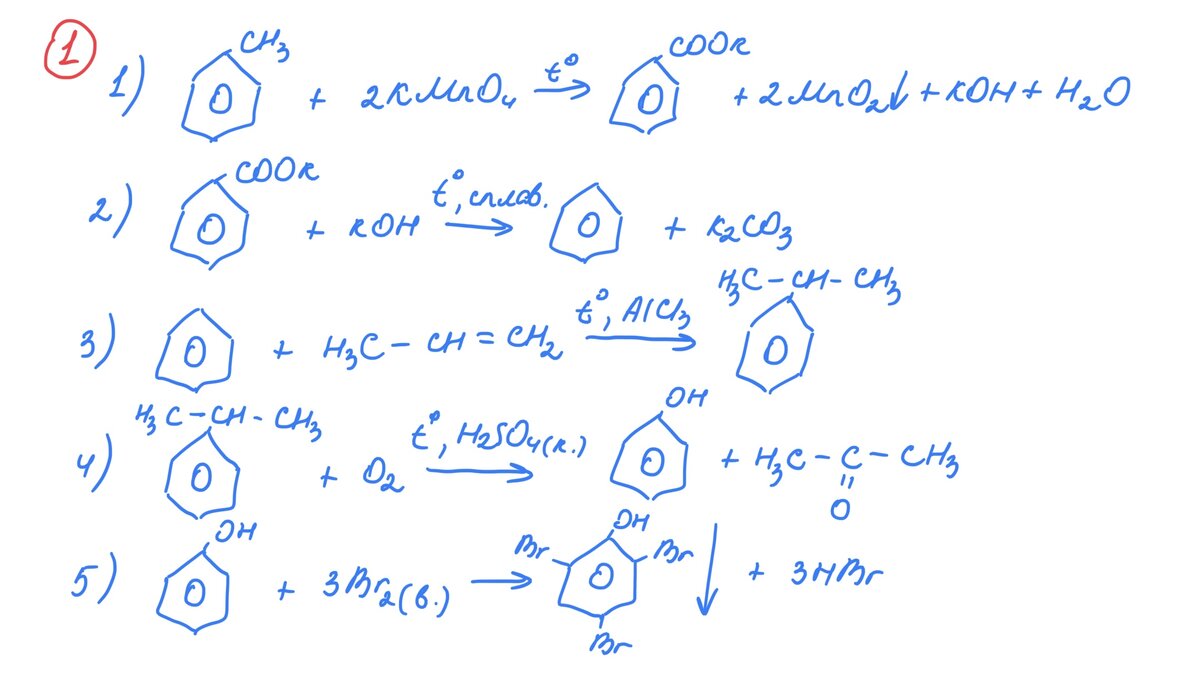 1
1) CH3 + 2KMnO4 t° → COOK + 2MnO2↓ + KOH + H2O
2) COOK + KOH t°, сплав. → + K2CO3
3) + H3C - CH = CH2 t°, AlCl3 → H3C - CH - CH3
4) H3C - CH - CH3 + O2 t°, H2SO4(к.) → OH + H3C - C - CH3
O
5) OH + 3Br2(в.) → OH Br Br Br ↓ + 3HBr